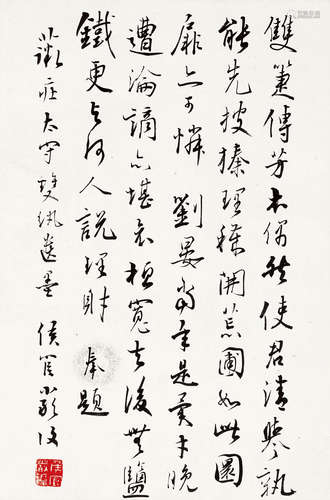 雙箑傳芳本偶然使君清譽孰
能先披榛理穢開荒圃如此園
扉亦可憐 劉晏當年是異才晚
遭淪謫亦堪哀桓寬去後無鹽
鐵更與何人說理財 奉題
莊太守雙紈遺墨 侯官嚴復